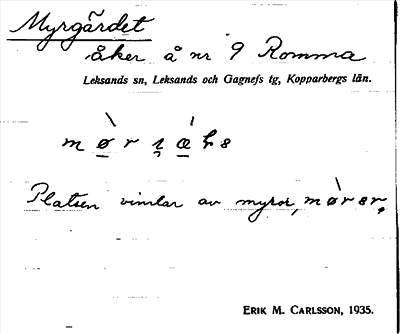 Myrgärdet
åker å nr 9 Romma
Leksands sn, Leksands och Gagnefs tg, Kopparbergs län.
Platsen vimlar av myror, mø̀rer,
ERIK M. CARLSSON, 1935.